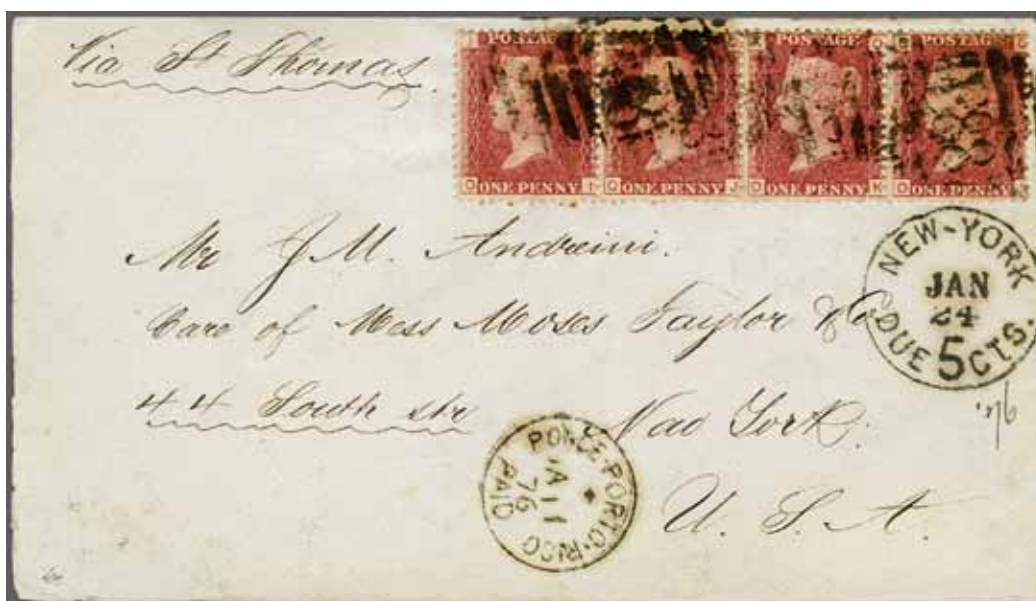 Via St Thomas.
POSTAGE POSTAGE POSTAGE POSTAGE
O ONE PENNY I O ONE PENNY J O ONE PENNY K O ONE PENNY
Mr J. M. Andreini.
Care of Mess Moses Taylor & Co
44 South str New York.
U. S. A
NEW-YORK
JAN
24
DUE 5 CTS.
PONCE·PORTO·RICO
JA 11
76
PAID